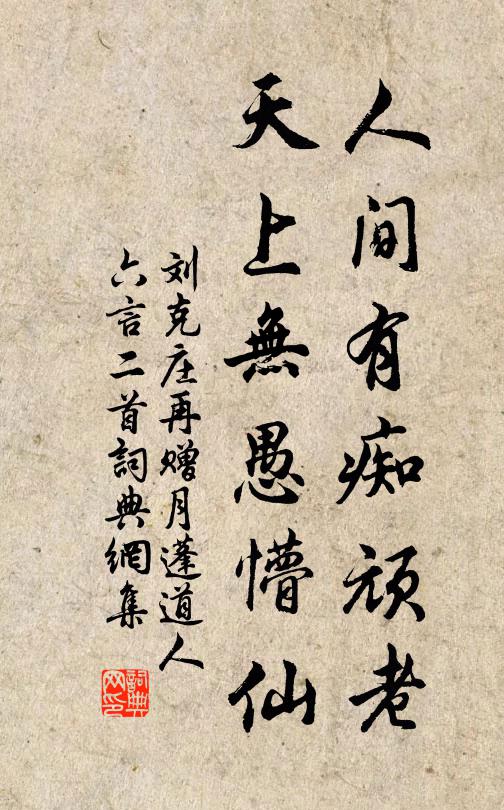 人间有痴顽老
天上無愚懵仙
刘克庄再赠月蓬道人
六言二首詞典網集
詞典网印